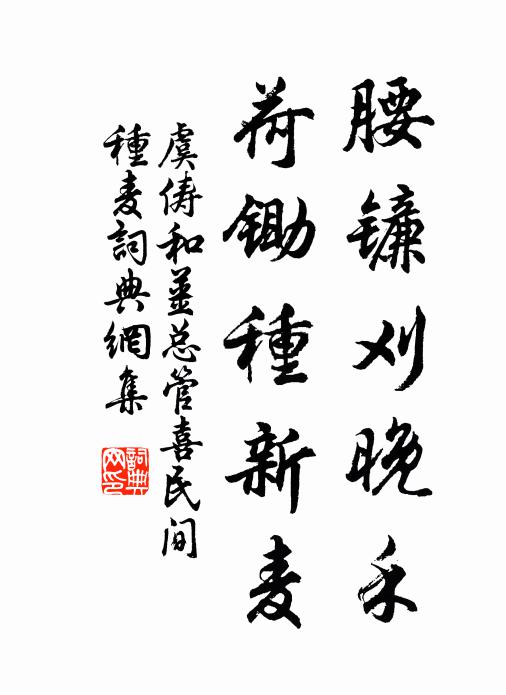 腰镰刈晚禾
荷锄種新麦
虞俦和姜总管喜民间
種麦詞典網集
詞典
网印